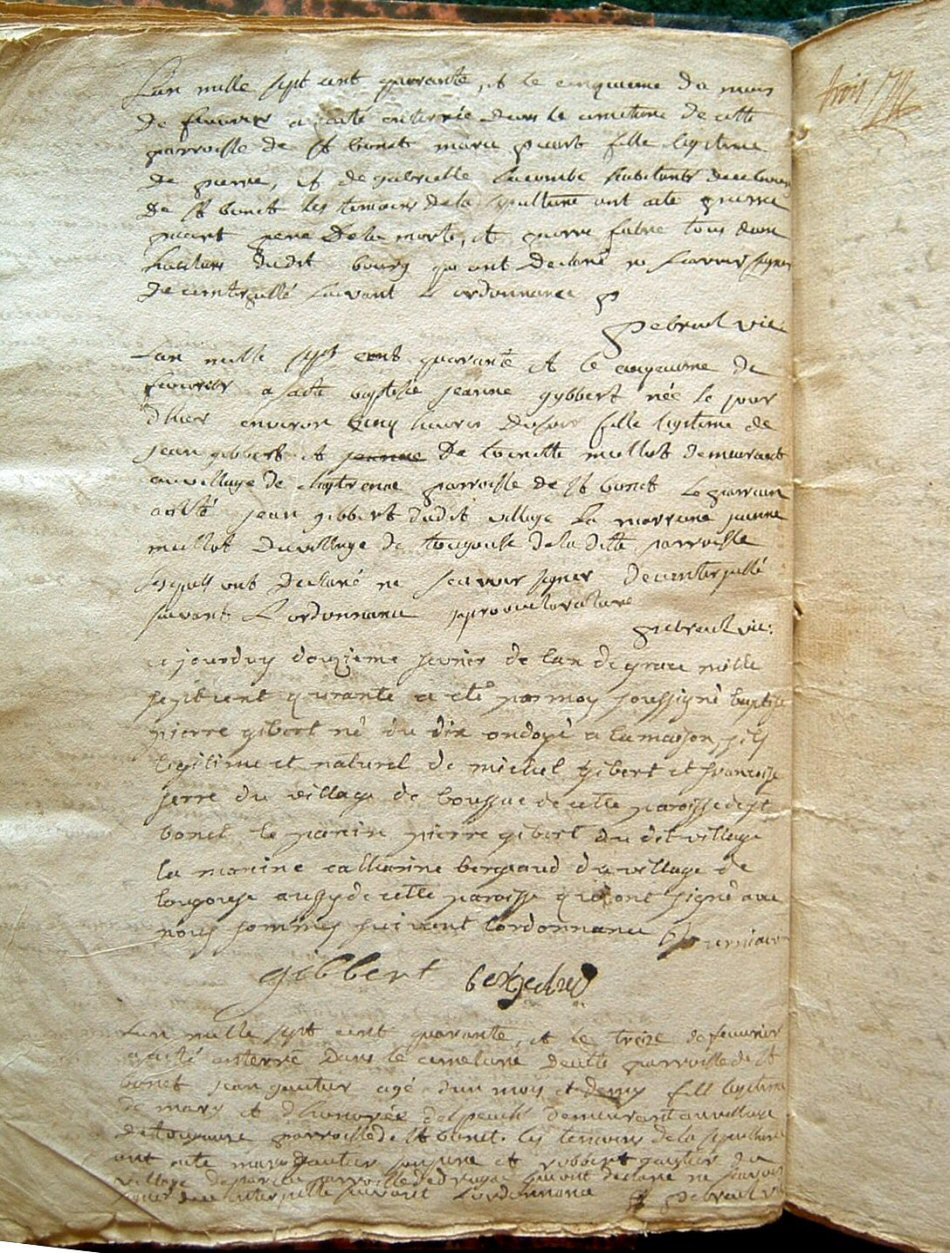 L'an mille sept cent quarante, et le cinquieme du mois
de feuvrier a esté enterrée dans le cimetiere de cette
parroisse de St bonet marie picart fille legitime
de pierre, et de gabrielle lacombe habitants
de St bonet les temoins de la sepulture ont esté pierre
picart pere de la morte, et pierre fabre tous deux
habitans dudit bourg qui ont declaré ne scavoir signer
de ce interpellé suivant l'ordonnance
vic
L'an mille sept cent quarante et le cinquieme de
feuvrier a esté baptisée jeanne gybbert née le jour
d'hier environ cinq heures du soir fille legitime de
jean gibbert et jeanne De toinette mullot demeurant
au village de parroisse de St bonet le parrain
a esté jean gibbert dudit village La marraine jeanne
mullot du village de de la ditte parroisse
lesquels ont declaré ne scavoir signer de ce interpellé
suivant l'ordonnance
vic:
ce jourduy douzieme fevrier de l'an de grace mille
sept cent quarante a eté par moy soussigné baptisé
pierre gibert né du dix ondoyé a la maison fils
legitime et naturel de michel gibert et francoise
serre du village de boussac de cette paroisse de st
bonet le parrin pierre gibert du dit village
la marine catharine bergaud du village de
longouse aussy de cette paroisse qui ont signé avec
nous sommes suivent l'ordonnance
gibbert
L'an mille sept cent quarante, et le treize de feuvrier
a esté enterré dans le cimetiere de cette parroisse de St
bonet jean gautier agé d'un mois et demy fils legitime
de mary et d'honorée demeurant au village
de parroisse de St bonet. les temoins de la sepulture
ont esté gautier son pere et robbert gautier du
village de parroisse de qui ont declaré ne scavoir
signer de ce interpellé suivant l'ordonnance
trois